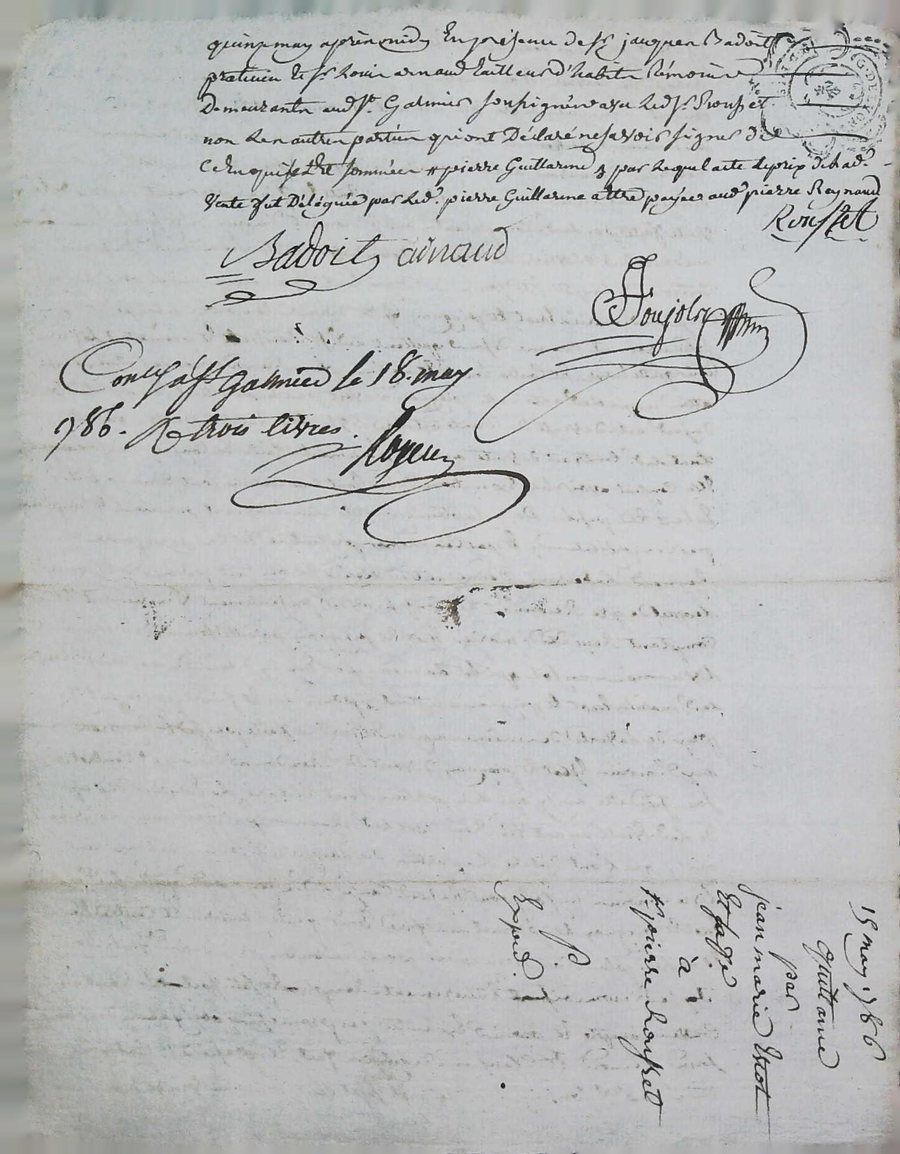 quinze may après midy En présence de Sr jacques Badoit
praticien et Sr Louis arnaud tailleur d'habits témoins
Demeurants aud. St. Galmier soussignés avec led. Sr Rousset
non les autres parties qui ont Déclaré ne savoir signer de
ce Enquis et sommées # pierre Guillarme par lequel acte le prix de lad.
Vente fut Déléguée par led. pierre Guillarme a être payée aud. pierre Reynaud
Rousset
Badoit arnaud
Poujols
Con.lé a St. Galmier le 18. may
786. R trois livres.
15 may 1786
quittance
par
jean marie
Et
à
Sr pierre Rousset
P.
Exped.